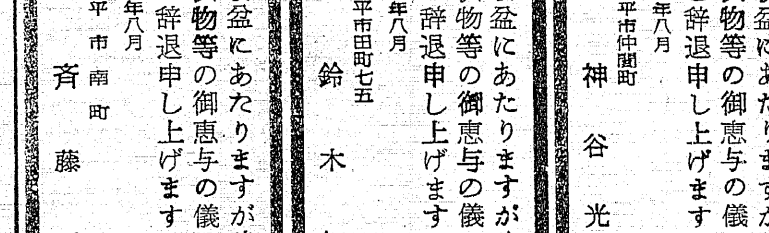 盆にあたりますが
物等の御恵与の儀
辞退申し上げます
年八月
平市仲間町
神谷光
盆にあたりますが
物等の御恵与の儀
辞退申し上げます
年八月
平市田町七五
鈴木
盆にあたりますが
物等の御恵与の儀
辞退申し上げます
年八月
平市南町
斉藤